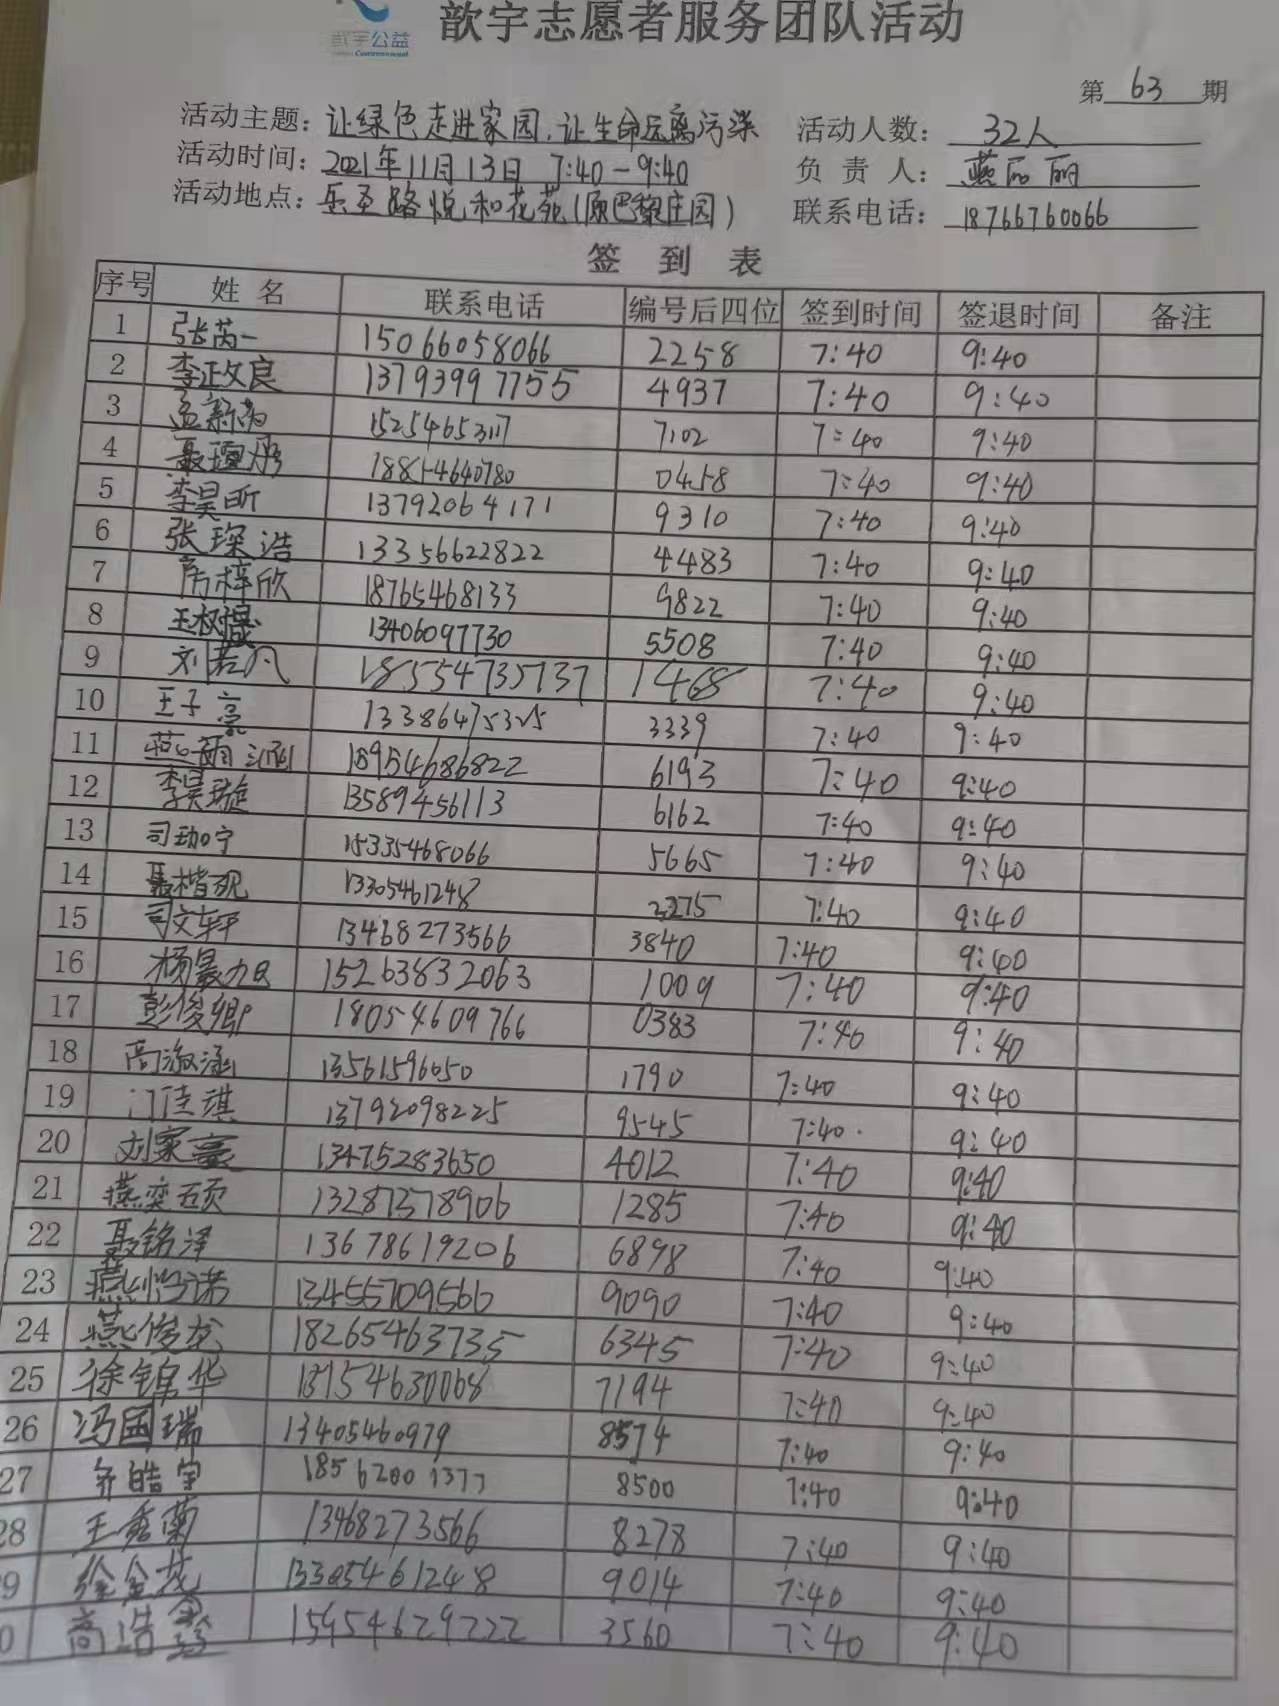 歆宇公益
歆宇志愿者服务团队活动
第 63 期
活动主题：让绿色走进家园，让生命远离污染 活动人数： 32人
活动时间：2021年11月13日 7:40－9:40 负 责 人： 燕丽丽
活动地点：乐圣路悦和花苑（原巴黎庄园） 联系电话：18766760066
签 到 表
序号 姓 名 联系电话 编号后四位 签到时间 签退时间 备注
1 张芮一 15066058066 2258 7:40 9:40
2 李政良 13793997755 4937 7:40 9:40
3 15254653117 7102 7:40 9:40
4 18854640780 0458 7:40 9:40
5 李昊昕 13792064171 9310 7:40 9:40
6 张琛浩 13356622822 4483 7:40 9:40
7 房梓欣 18765468133 9822 7:40 9:40
8 13406097730 5508 7:40 9:40
9 刘若凡 18554735737 1468 7:40 9:40
10 王子亮 13386475325 3339 7:40 9:40
11 18954686822 6193 7:40 9:40
12 李昊璇 13589456113 6162 7:40 9:40
13 15335468066 5665 7:40 9:40
14 聂楷砚 13305461248 2275 7:40 9:40
15 司文轩 13468273566 3840 7:40 9:40
16 15263832063 1009 7:40 9:40
17 彭俊卿 18054609766 0383 7:40 9:40
18 高溦涵 13561596050 1790 7:40 9:40
19 门佳琪 13792098225 9545 7:40 9:40
20 刘家豪 13475283650 4012 7:40 9:40
21 燕奕 13287378906 1285 7:40 9:40
22 聂铭泽 13678619206 6898 7:40 9:40
23 燕怡诺 13455709566 9090 7:40 9:40
24 燕俊龙 18265463735 6345 7:40 9:40
25 徐锦华 13754630068 7194 7:40 9:40
26 冯国瑞 13405460979 8574 7:40 9:40
27 齐皓宇 18562001377 8500 7:40 9:40
28 王秀兰 13468273566 8278 7:40 9:40
9 徐金花 13305461248 9014 7:40 9:40
0 高浩鑫 15954629222 3560 7:40 9:40